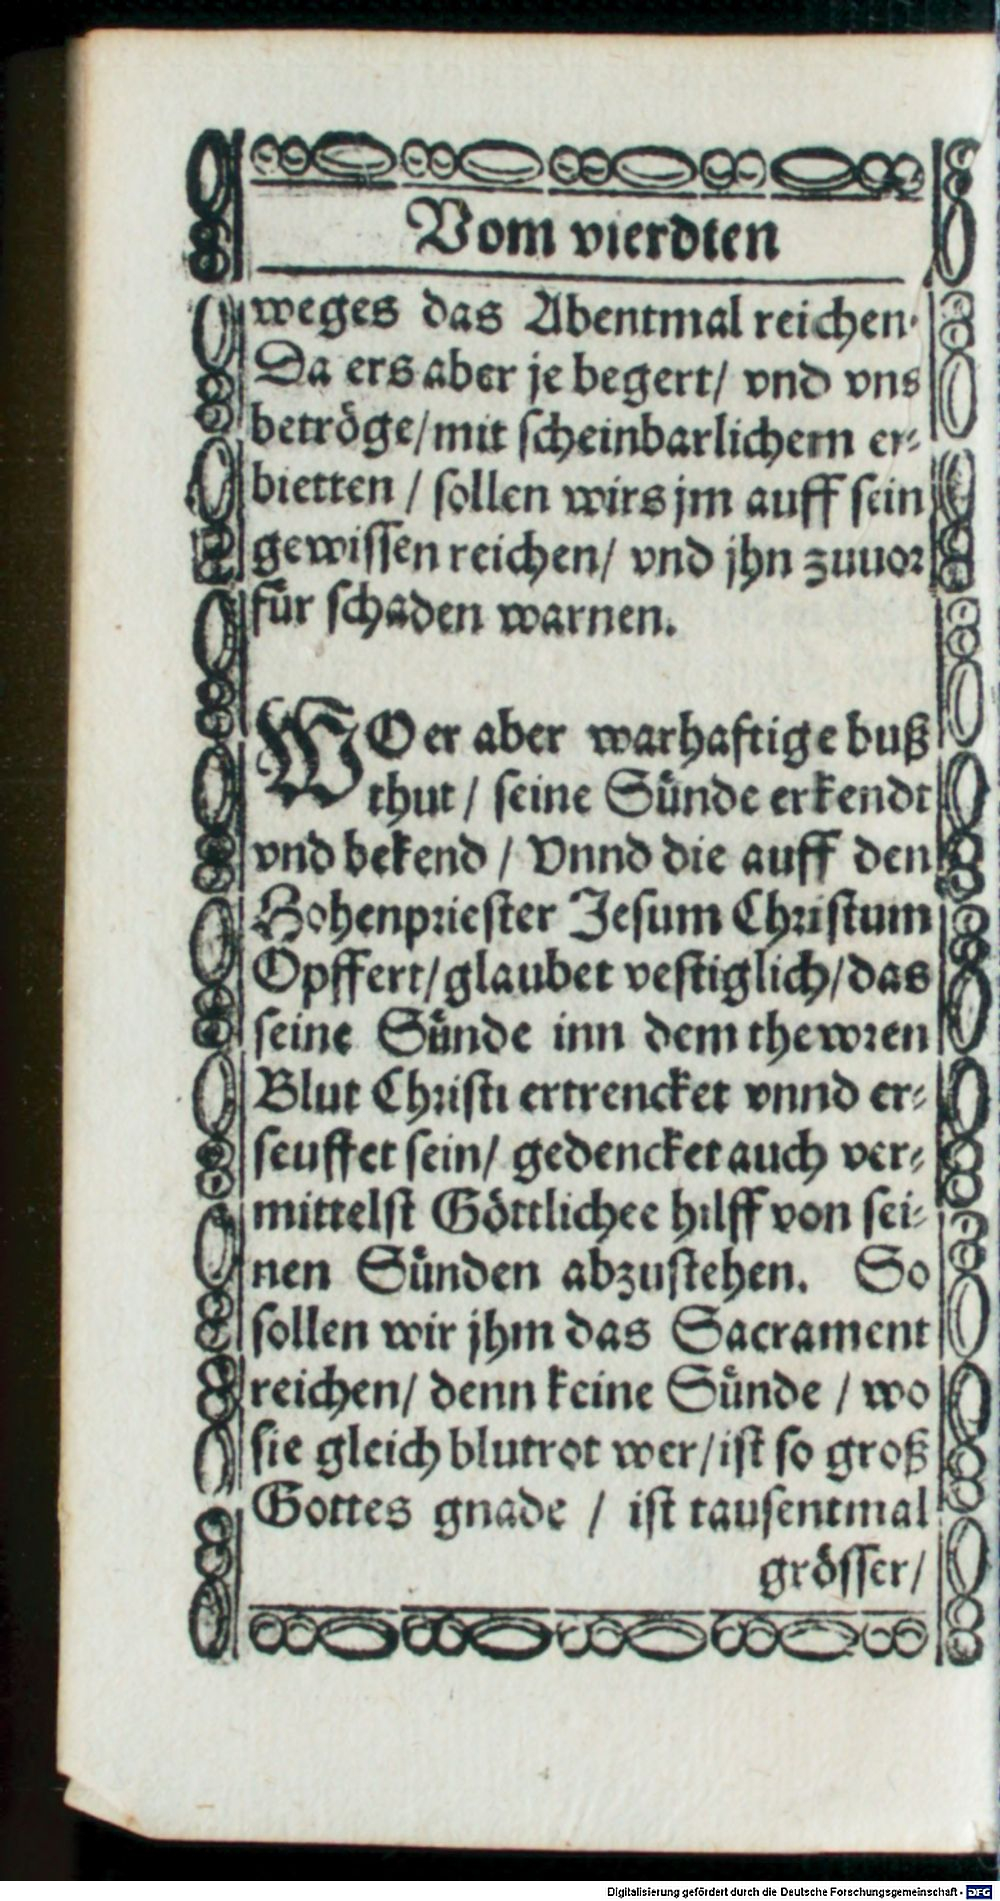 Vom vierdten
weges das Abentmal reichen.
Da ers aber je begert/ vnd vns
betröge/mit scheinbarlichem er-
bietten / sollen wirs jm auff sein
gewissen reichen/ vnd jhn zuuor
für schaden warnen.
WO er aber warhaftige buß
thut / seine Sünde erkendt
vnd bekend / Vnnd die auff den
Hohenpriester Jesum Christum
Opffert/glaubet vestiglich/das
seine Sünde inn dem thewren
Blut Christi ertrencket vnnd er-
seuffet sein/ gedencket auch ver-
mittelst Göttlichee hilff von sei-
nen Sünden abzustehen. So
sollen wir jhm das Sacrament
reichen/ denn keine Sünde / wo
sie gleich blutrot wer/ist so groß
Gottes gnade / ist tausentmal
grösser/
Digitalisierung gefördert durch die Deutsche Forschungsgemeinschaft - DFG